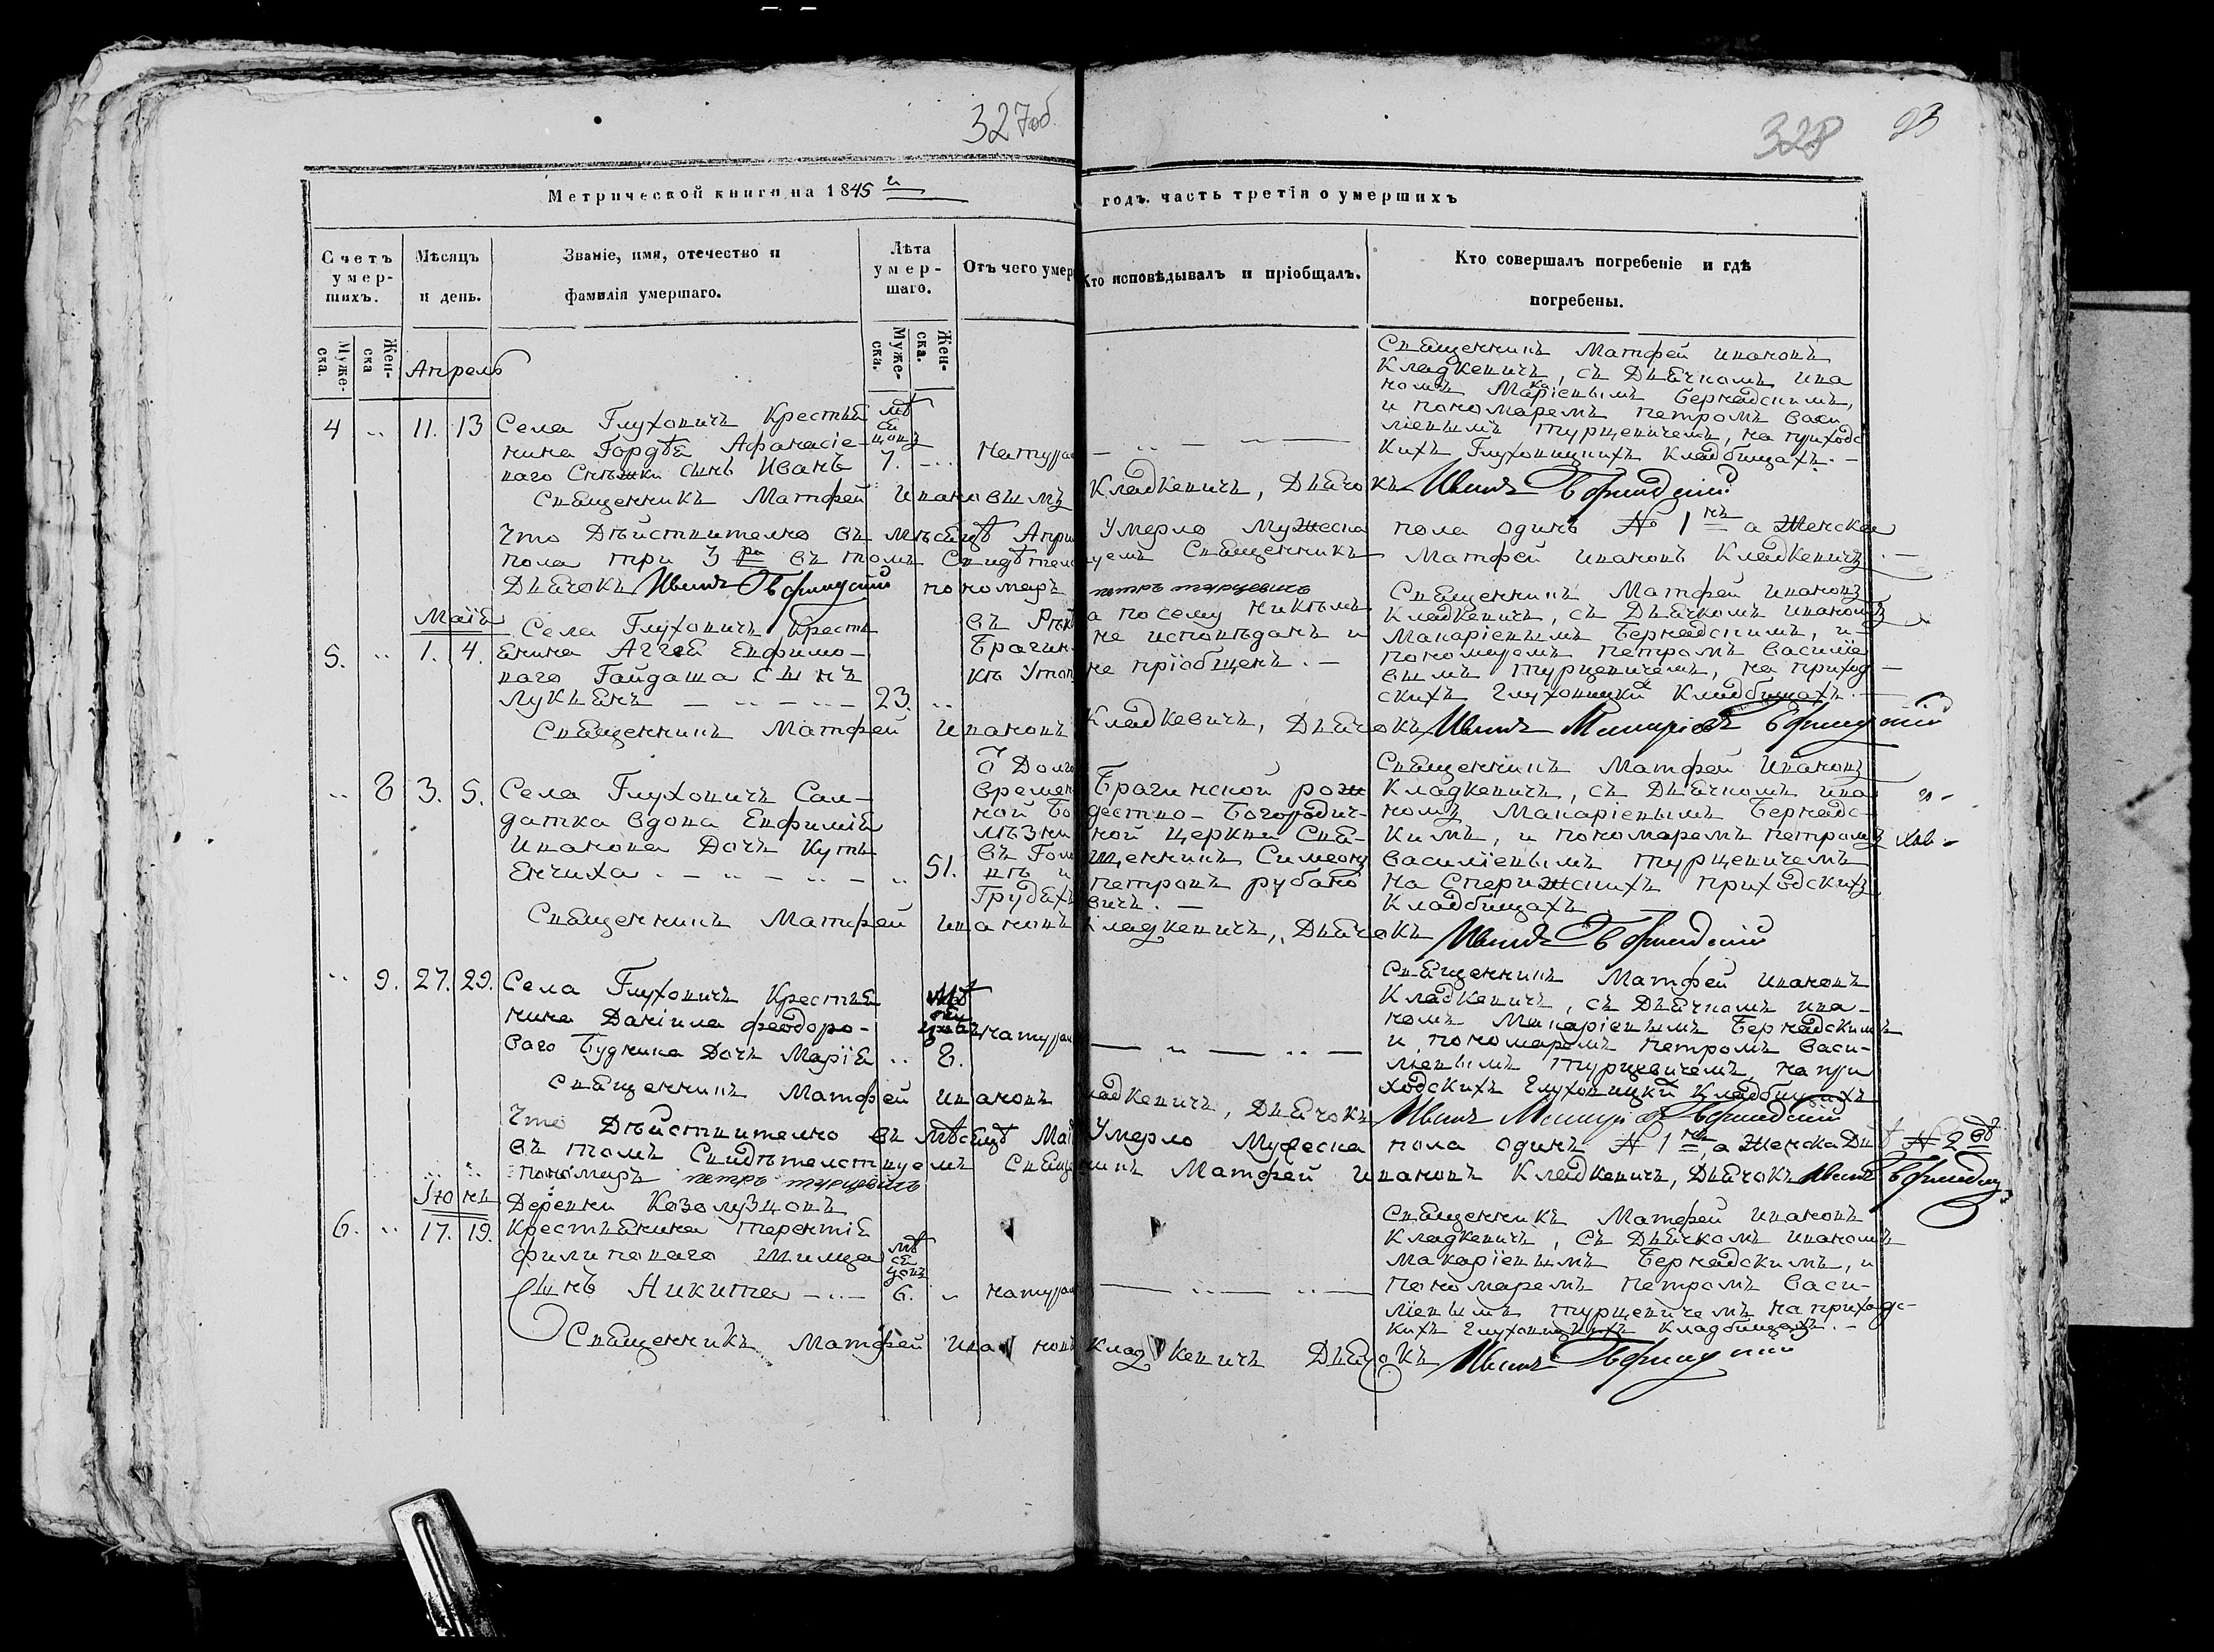 327об
328
23
Метрической книги на 1845 годъ. часть третія о умершихъ
Счетъ умер-шихъ.
Мѣсяцъ и день.
Званіе, имя, отечество и фамилія умершаго.
Лѣта умер-шаго.
Отъ чего умер
Кто исповѣдывалъ и пріобщалъ.
Кто совершалъ погребеніе и гдѣ погребены.
Муже-ска.
Жен-ска
Муже-ска.
Жен-ска.
Апрель
4 .. 11. 13
Села Глуховичъ Крестья
нина Гордѣя Афанасіе-
ваго сынъ Иванъ
мѣ
ся
цовъ
7. ...
натурал
Священникъ Матфей Иановъ
Кладкевичъ, съ Дьячкомъ Ива
номъ Макаріевымъ Бернадскимъ,
и пономаремъ Петромъ Васи
ліевымъ Турцевичемъ, на приходс
кихъ Глуховицкихъ Кладбищахъ. -
Священникъ Матфей Кладкевичъ, Дьячокъ Иванъ
Что Дѣйствително въ мѣсяцѣ Апри Умерло Мужеска пола одинъ № 1 а Женска
пола три 3 въ томъ Свидѣтелс уемъ Священникъ Матфей Иановъ Кладкевичъ. -
Дьячокъ Иванъ пономарь петръ турцевичъ
Маія
5. .. 1. 4.
Села Глуховичъ Кресть
янина Аггея Евфимо-
ваго Гайдаша сынъ
Лукьянъ - .. - .. - 23. ..
въ Рѣк
Брагин
кѣ Утоп
а посему никѣмъ
не исповѣданъ и
не пріобщенъ. -
Священникъ Матфей Иановъ
Кладкевичъ, съ Дьячкомъ Иваномъ
Макаріевымъ Бернадскимъ, и
пономаремъ Петромъ Василіе
вымъ Турцевичемъ, на приход -
скихъ Глуховицки Кладбищахъ. -
Священникъ Матфей Иановъ Кладкевичъ, Дьячокъ Иванъ
.. 8 3. 5.
Села Глуховичъ Сол-
датка вдова Евфимія
Иванова Дочь Кутъ
янчиха. - .. - .. - .. 51.
Долго
времен
ной Бо
лѣзни
въ Гол
вѣ и
Грудяхъ
Брагинской рож
дество-Богородич-
ной церкви Свя-
щенникъ Симеонъ
Петровъ рубано
вичъ. -
Священникъ Матфей Иановъ
Кладкевичъ, съ Дьячкомъ Ива
номъ Макаріевымъ Бернадс-
кимъ, и пономаремъ Петромъ
Василіевымъ Турцевичемъ
на Сперижскихъ приходскихъ
Кладбищахъ
Священникъ Матфей Иановъ Кладкевичъ, Дьячокъ Иванъ
.. 9. 27. 29.
Села Глуховичъ Крестья
нина Даніила феодоро-
ваго Будника Дочь Марія ..
8.
натурал
Священникъ Матфей Иановъ
Кладкевичъ, съ Дьячкомъ Ива-
номъ Макаріевымъ Бернадскимъ
и пономаремъ Петромъ Васи-
ліевымъ Турцевичемъ, на при
ходскихъ Глуховицки Кладбищахъ
Священникъ Матфей Иановъ ладкевичъ, Дьячокъ Иванъ
Что Дѣйствително въ Мѣсяцѣ Маі Умерло Мужеска пола одинъ № 1, а Женска Двѣ № 2
въ томъ Свидѣтелствуемъ Свяще никъ Матфей Иановъ Кладкевичъ, Дьячокъ Иванъ
пономарь петръ турцевичъ
Іюнь
6. .. 17. 19.
Деревни Козолузцовъ
Крестьянина Терентія
филиповаго Шимца
сынъ Никита - .. -
мѣ
ся
цовъ
6. ..
натурал
Священникъ Матфей Иановъ
Кладкевичъ, съ Дьячкомъ Иваномъ
Макаріевымъ Бернадскимъ, и
пономаремъ Петромъ Васи-
ліевымъ Турцевичемъ на приходс-
кихъ Глуховицкихъ Кладбищахъ. -
Священникъ Матфей Иановъ Кладкевичъ Дьячокъ Иванъ